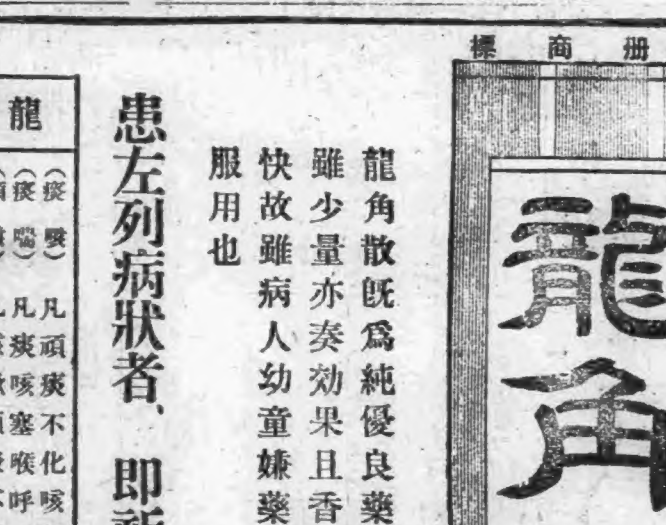 標商册
龍角
龍角散既爲純優良藥
雖少量亦奏効果且香
快故雖病人幼童嫌藥
服用也
患左列病狀者、即
龍
(痰咳)凡頑痰不化咳
(痰喘)凡痰咳塞喉呼